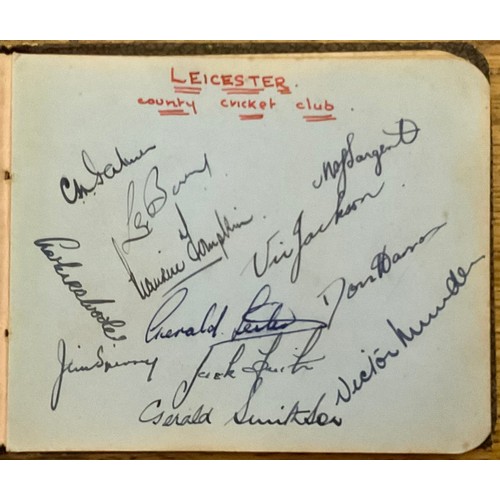 LEICESTER.
county cricket club.
M A J Sargent
Maurice Tompkin
Vic Jackson
Charles Palmer
Gerald Lester
Jim Sperry
Jack Firth
Victor Munden
Gerald Smithson